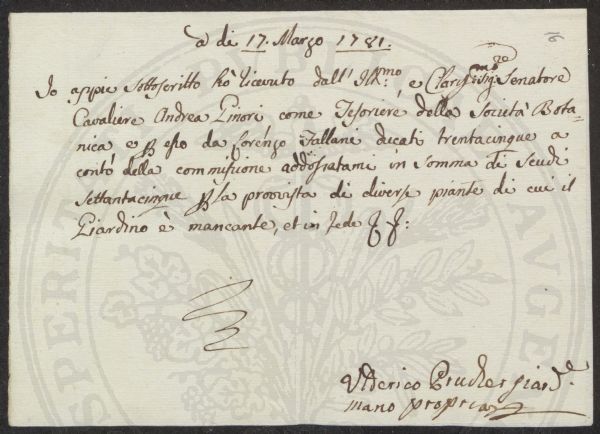 a di 17. Marzo 1781.
Io appiè Sottoscritto hò ricevuto dall' Ill.mo e Clariss.mo Sig.re Senatore
Cavaliere Andrea Ginori come Tesoriere della Società Bota-
nica e p esso da Lorenzo Fallani ducati trentacinque a
conto della commissione addossatami in Somma di Scudi
Settantacinque p la provvista di diverse piante di cui il
Giardino è mancante, et in fede
Ulderico
mano propria
PUBLICO